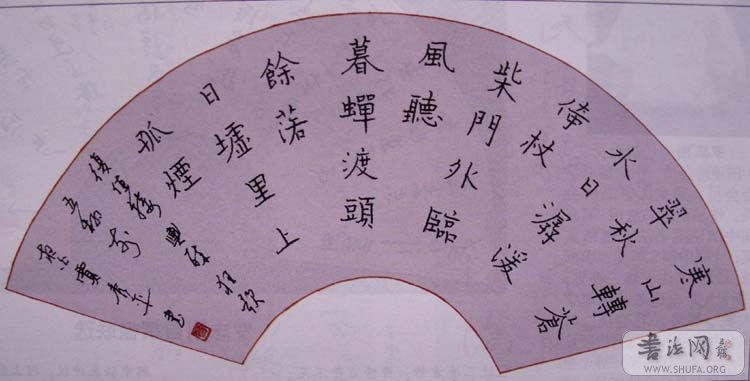 寒山轉蒼
翠秋
水日潺湲
倚杖
柴門外臨
風聽
暮蟬渡頭
餘落
日墟里上
孤煙
復值接輿醉狂歌
五柳前
書
書法网
WWW.SHUFA.ORG